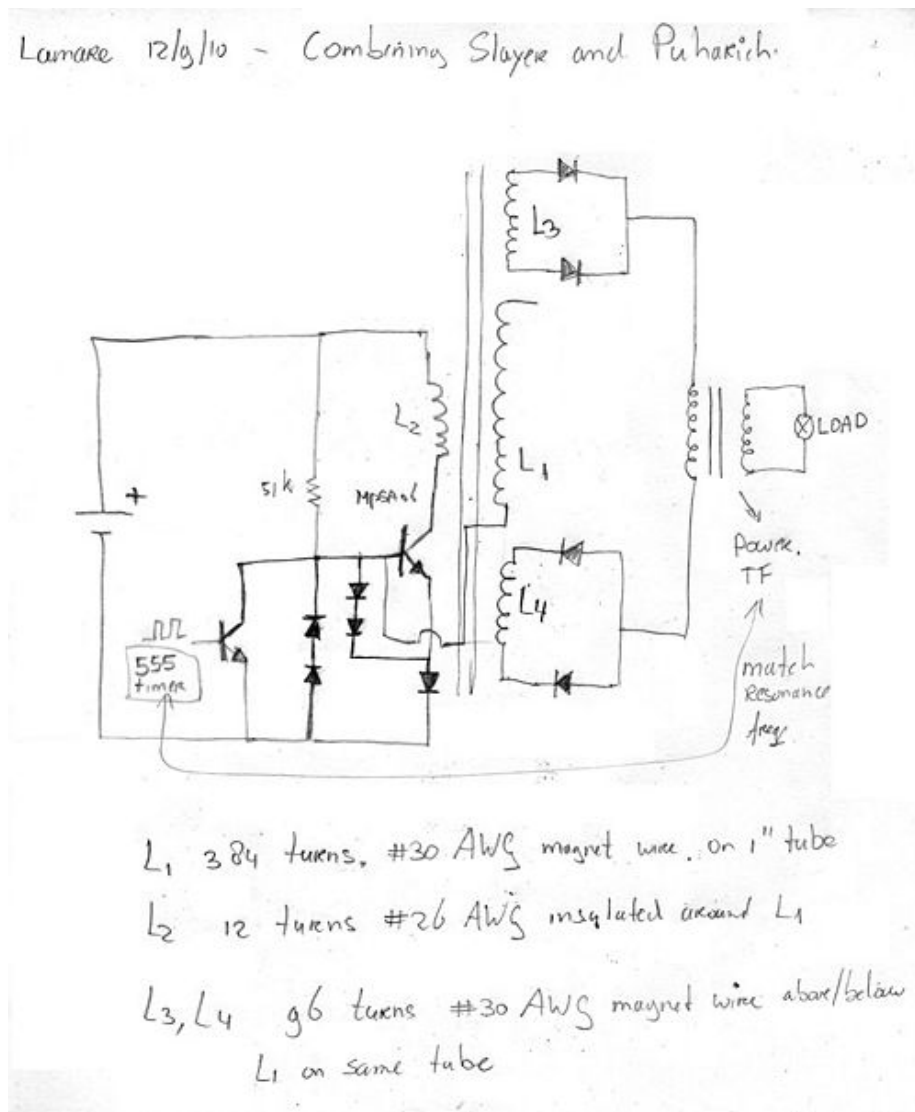 Lamare 12/9/10 - Combining Slayer and Puharich.
L3
L2
L1
LOAD
51k
MPSA06
+
Power.
TF
L4
555
timer
match
Resonance
freq.
L1 384 turns. #30 AWG magnet wire. on 1" tube
L2 12 turns #26 AWG insulated around L1
L3, L4 96 turns #30 AWG magnet wire above/below
L1 on same tube